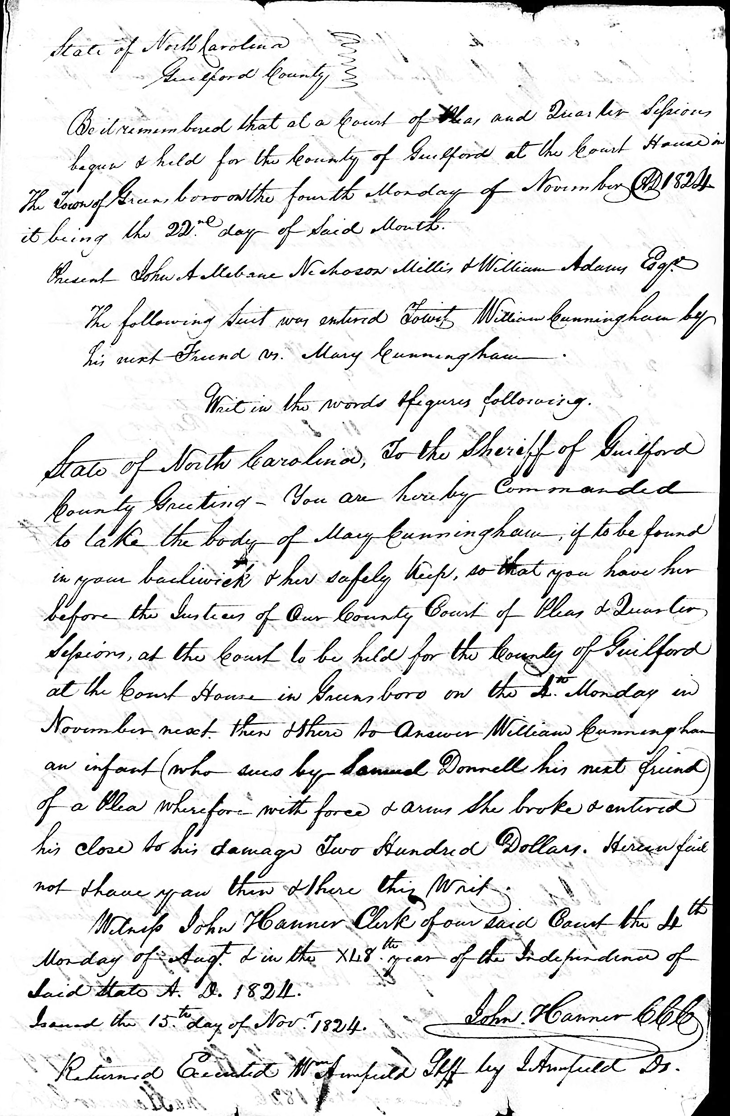 State of North Carolina
Guilford County
Be it remembered that at a Court of Pleas and Quarter Sessions
begun & held for the County of Guilford at the Court House in
The Town of Greensboro on the fourth Monday of November AD 1824
it being the 22nd day of Said Month.
Present John A Mebane Nicholson Millis & William Adams Esqrs
The following Suit was entered Towit William Cunningham by
his next Friend vs. Mary Cunningham.
Writ in the words & figures following.
State of North Carolina, To the Sheriff of Guilford
County Greeting - You are hereby Commanded
to take the body of Mary Cunningham, if to be found
in your bailiwick & her safely keep, so that you have her
before the Justices of Our County Court of Pleas & Quarter
Sessions, at the Court to be held for the County of Guilford
at the Court House in Greensboro on the 4th Monday in
November next then & there to Answer William Cunningham
an infant (who sues by Samuel Donnell his next friend)
of a Plea wherefore with force & arms She broke & entered
his close to his damage Two Hundred Dollars. Herein fail
not & have you then & there this Writ.
Witness John Hanner Clerk of our said Court the 4th
Monday of Augt & in the XLVIII 8th year of the Independence of
Said State A. D. 1824.
Issued the 15th day of Novr 1824.
John. Hanner CCC
Returned Executed Wm Armfield Shff by J Armfield Ds.